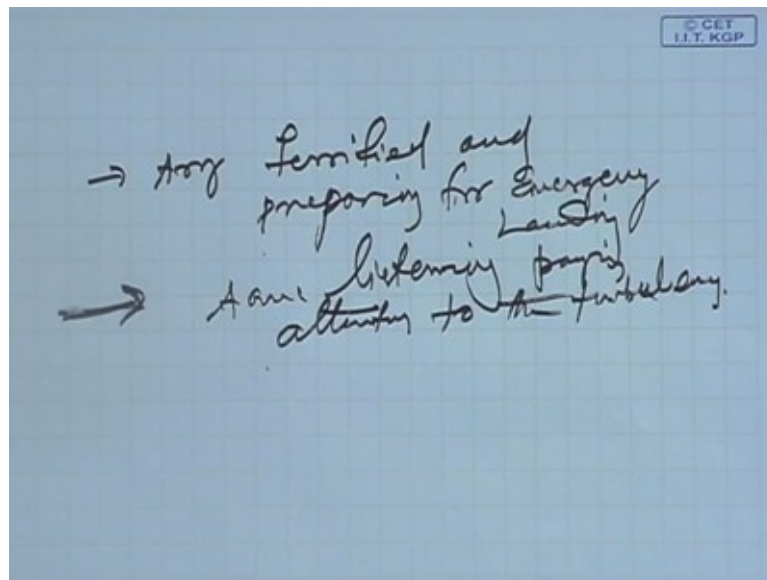 © CET
I.I.T. KGP
→ Any terrified and
preparing for Emergency
Landing
→ A am listening paying
attention to the turbulency.